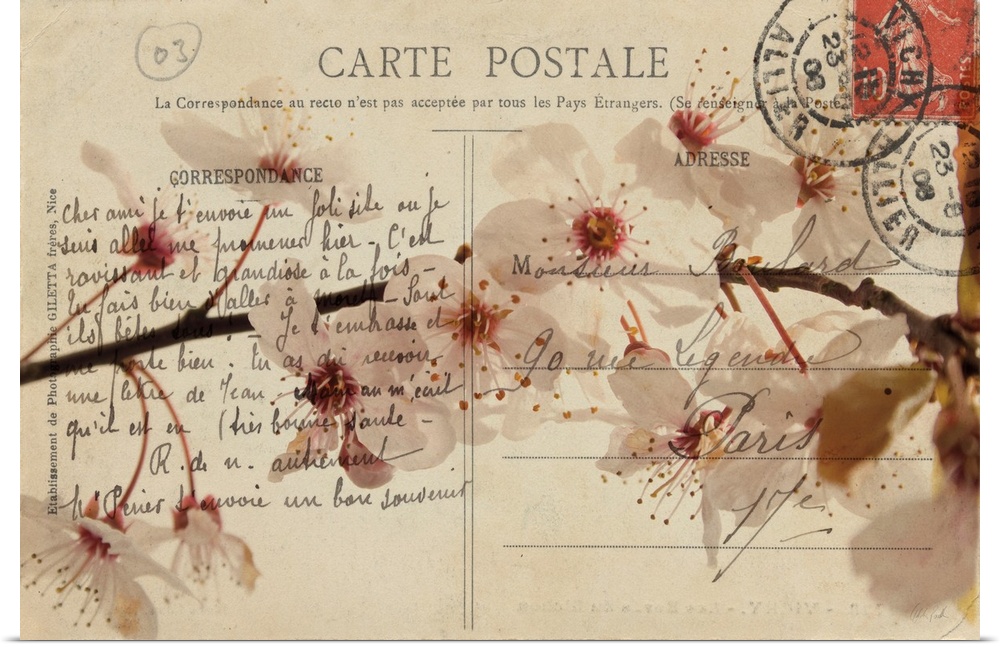 03.
CARTE POSTALE
La Correspondance au recto n'est pas acceptée par tous les Pays Étrangers. (Se renseigner à la Poste
VICHY
ALLIER
23-8
08
ALLIER
23-8
08
CORRESPONDANCE
ADRESSE
Cher ami je t'envoie un joli site ou je
suis allé me promener hier - C'est
ravissant et grandiose à la fois -
tu fais bien d'aller à - Sont
ils Je t'embrasse et
me porte bien. tu as du recevoir
une lettre de Jean - m'écrit
qu'il est en (très bonne santé -
R. de n. autrement
t'envoie un bon souvenir
Monsieur
90 rue Legendre
Paris
17e
Etablissement de Photographie GILETTA frères, Nice